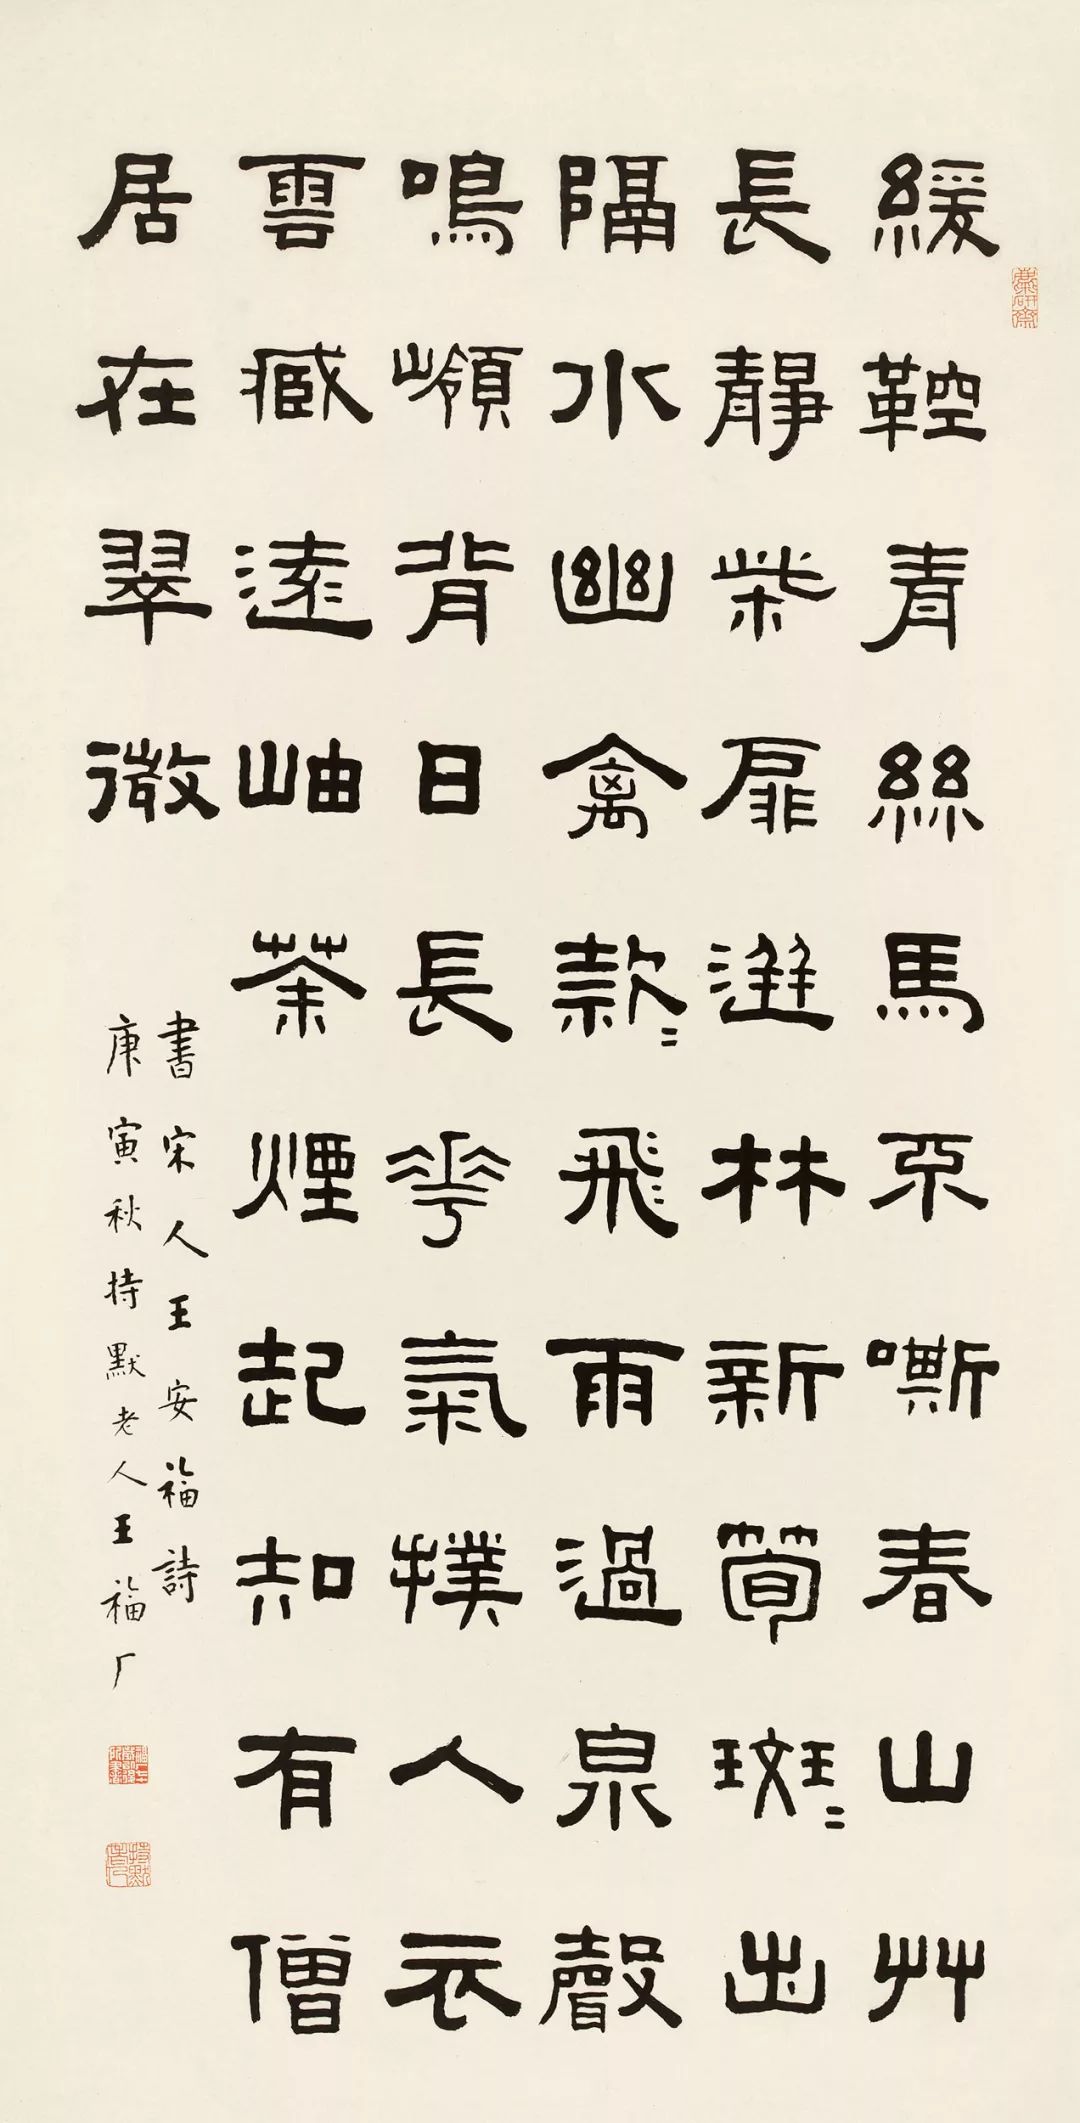 麋研齋
緩鞚青絲馬不嘶春山艸
長靜柴扉迸林新筍斑=出
隔水幽禽款=飛雨過泉聲
鳴嶺背日長花氣撲人衣
雲臧遠岫茶煙起知有僧
居在翠微
書宋人王安福詩
庚寅秋持默老人王福厂